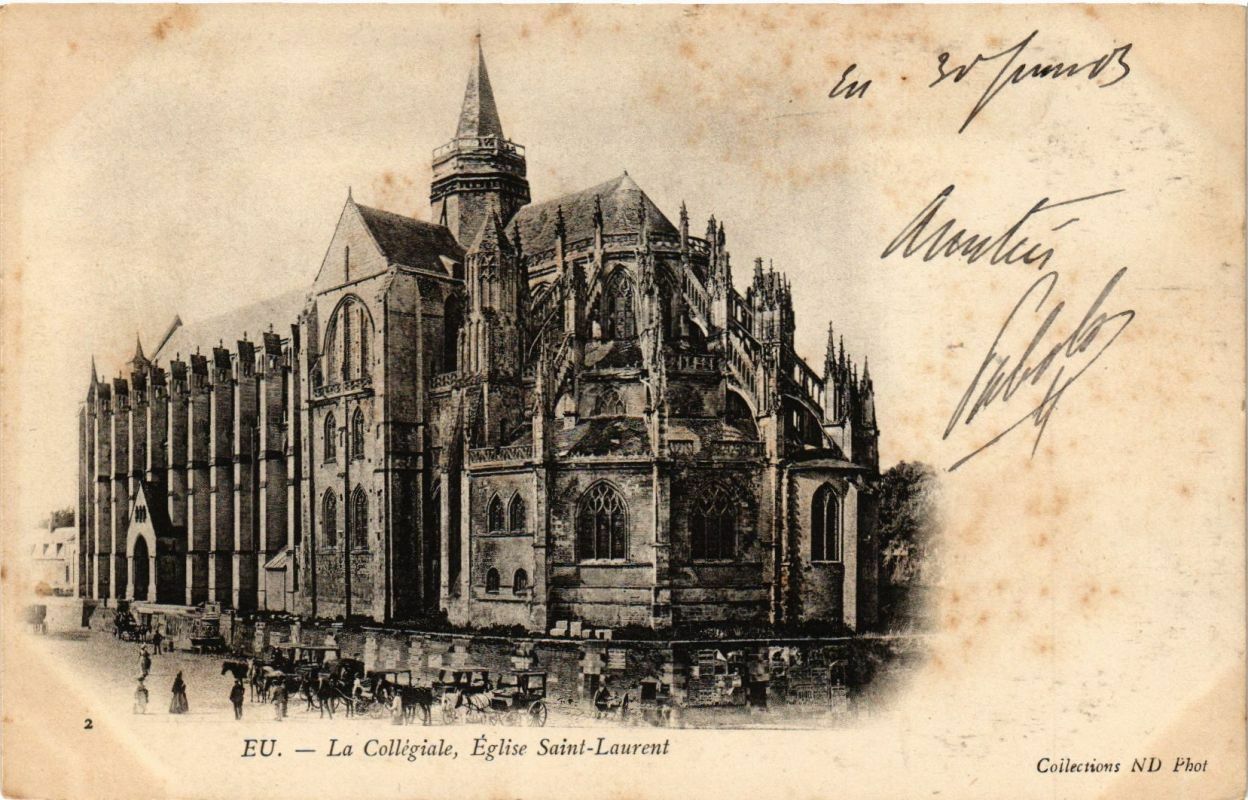 30 Juin 03
2
EU. — La Collégiale, Église Saint-Laurent
Collections ND Phot